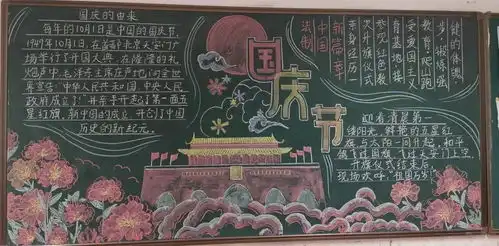 国庆的由来
每年的10月1日是中国的国庆节,
1949年10月1日,在首都北京天安门广
场举行了开国大典,在隆隆的礼
炮声中,毛泽东主席庄严地向全世
界宣告:"中华人民共和国中央人民
政府成立了!"并亲手升起了第一面五
星红旗,新中国的成立开创了中国
历史的新纪元。
国庆节
中国
亲身经历
次升旗仪式
参观红色教
育基地接
受爱国主义
教育、爬山跑
步、锻炼强
健的体魄
迎着清晨第一
缕阳光,鲜艳的五星红
旗与太阳一同升起,和平
鸽飞过国旗,飞过天安门上空
升旗仪式结束后,
现场欢呼,"祖国万岁!"